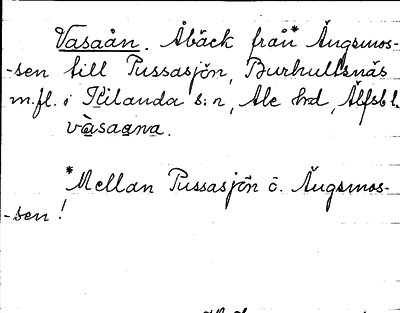 Vasaån. Åbäck från* Ängsmos-
-sen till Pussasjön, Burhultsnäs
m.fl. i Kilanda s:n, Ale hd, Älfsb l.
vàsaɑna.
*Mellan Pussasjön o. Ängsmos-
-sen!